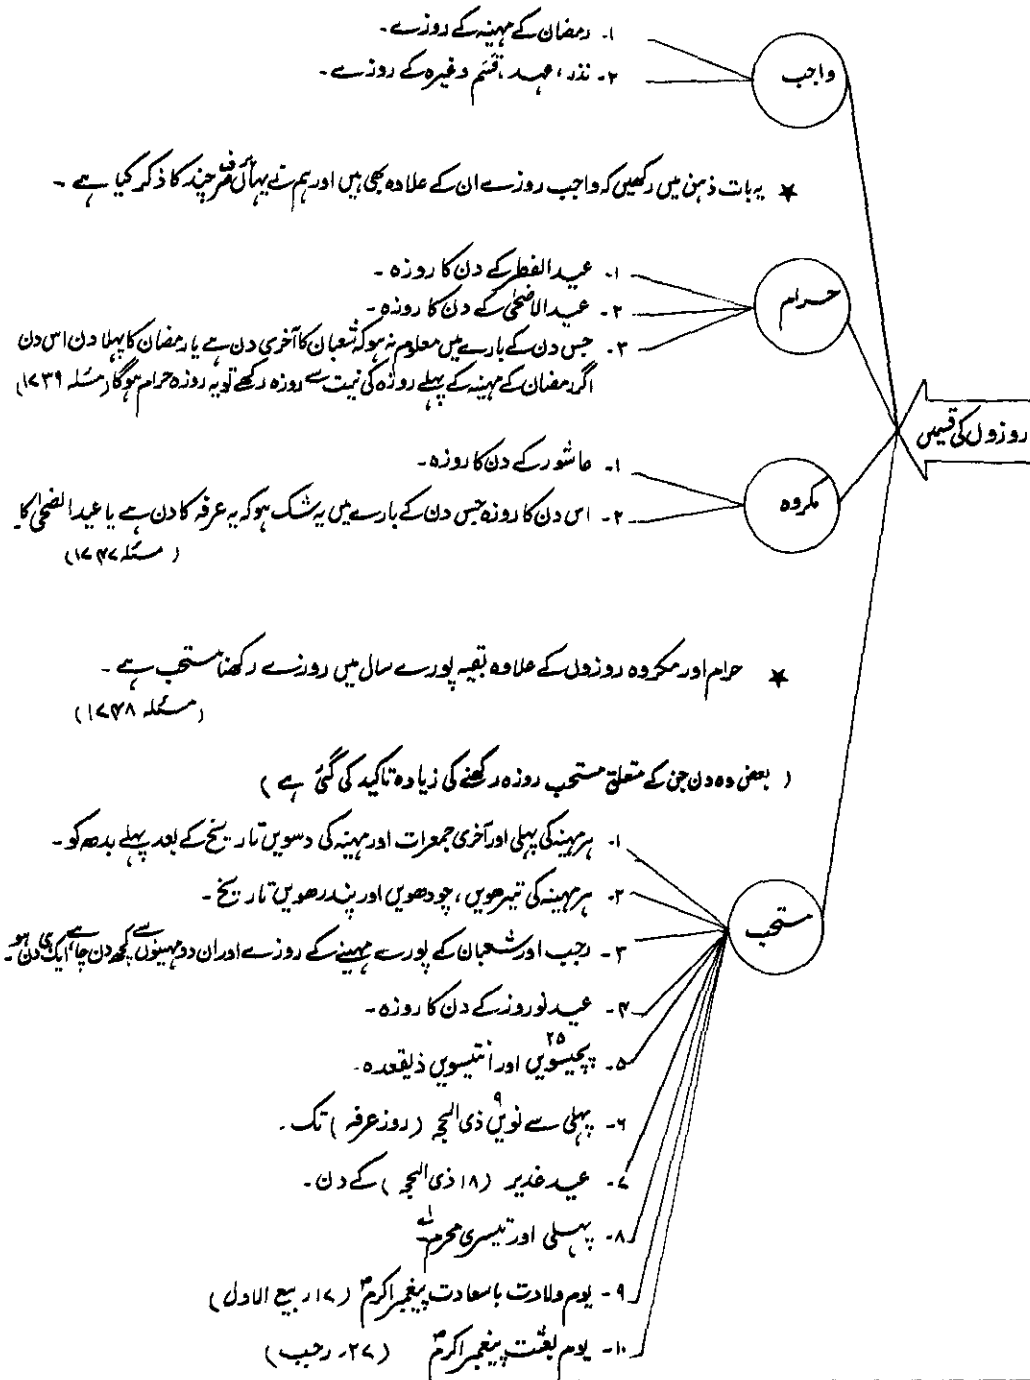 ۱۔ رمضان کے مہینہ کے روزے۔
واجب
۲۔ نذر، عہد، قسم وغیرہ کے روزے۔
★ یہ بات ذہن میں رکھیں کہ واجب روزے ان کے علاوہ بھی ہیں اور ہم نے یہاں صرف چند کا ذکر کیا ہے ۔
۱۔ عید الفطر کے دن کا روزہ ۔
حرام
۲۔ عید الاضحیٰ کے دن کا روزہ ۔
۳۔ جس دن کے بارے میں معلوم نہ ہو کہ شعبان کا آخری دن ہے یا رمضان کا پہلا دن اس دن
اگر رمضان کے مہینہ کے پہلے روزہ کی نیت سے روزہ رکھے تو یہ روزہ حرام ہوگا (مسئلہ ۱۷۳۹)
روزوں کی قسمیں
۱۔ عاشور کے دن کا روزہ ۔
مکروہ
۲۔ اس دن کا روزہ جس دن کے بارے میں یہ شک ہو کہ یہ عرفہ کا دن ہے یا عید الضحیٰ کا۔
(مسئلہ ۱۷۴۷)
★ حرام اور مکروہ روزوں کے علاوہ بقیہ پورے سال میں روزے رکھنا مستحب ہے ۔
(مسئلہ ۱۷۴۸)
( بعض وہ دن جن کے متعلق مستحب روزہ رکھنے کی زیادہ تاکید کی گئی ہے )
۱۔ ہر مہینہ کی پہلی اور آخری جمعرات اور مہینہ کی دسویں تاریخ کے بعد پہلے بدھ کو ۔
۲۔ ہر مہینہ کی تیرھویں ، چودھویں اور پندرھویں تاریخ ۔
مستحب
۳۔ رجب اور شعبان کے پورے مہینے کے روزے اور ان دو مہینوں سے کچھ دن چاہے ایک ہی دن ہو ۔
۴۔ عید نوروز کے دن کا روزہ ۔
۵۔ پچیسویں ۲۵ اور انتیسویں ذیقعدہ ۔
۶۔ پہلی سے نویں ۹ ذی الحجہ (روز عرفہ ) تک ۔
۷۔ عید غدیر (۱۸ ذی الحجہ ) کے دن ۔
۸۔ پہلی اور تیسری محرم لہ
۹۔ یوم ولادت باسعادت پیغمبر اکرمؐ (۱۷؍ ربیع الاول )
۱۰۔ یوم بعثت پیغمبر اکرمؐ (۲۷؍ رجب )